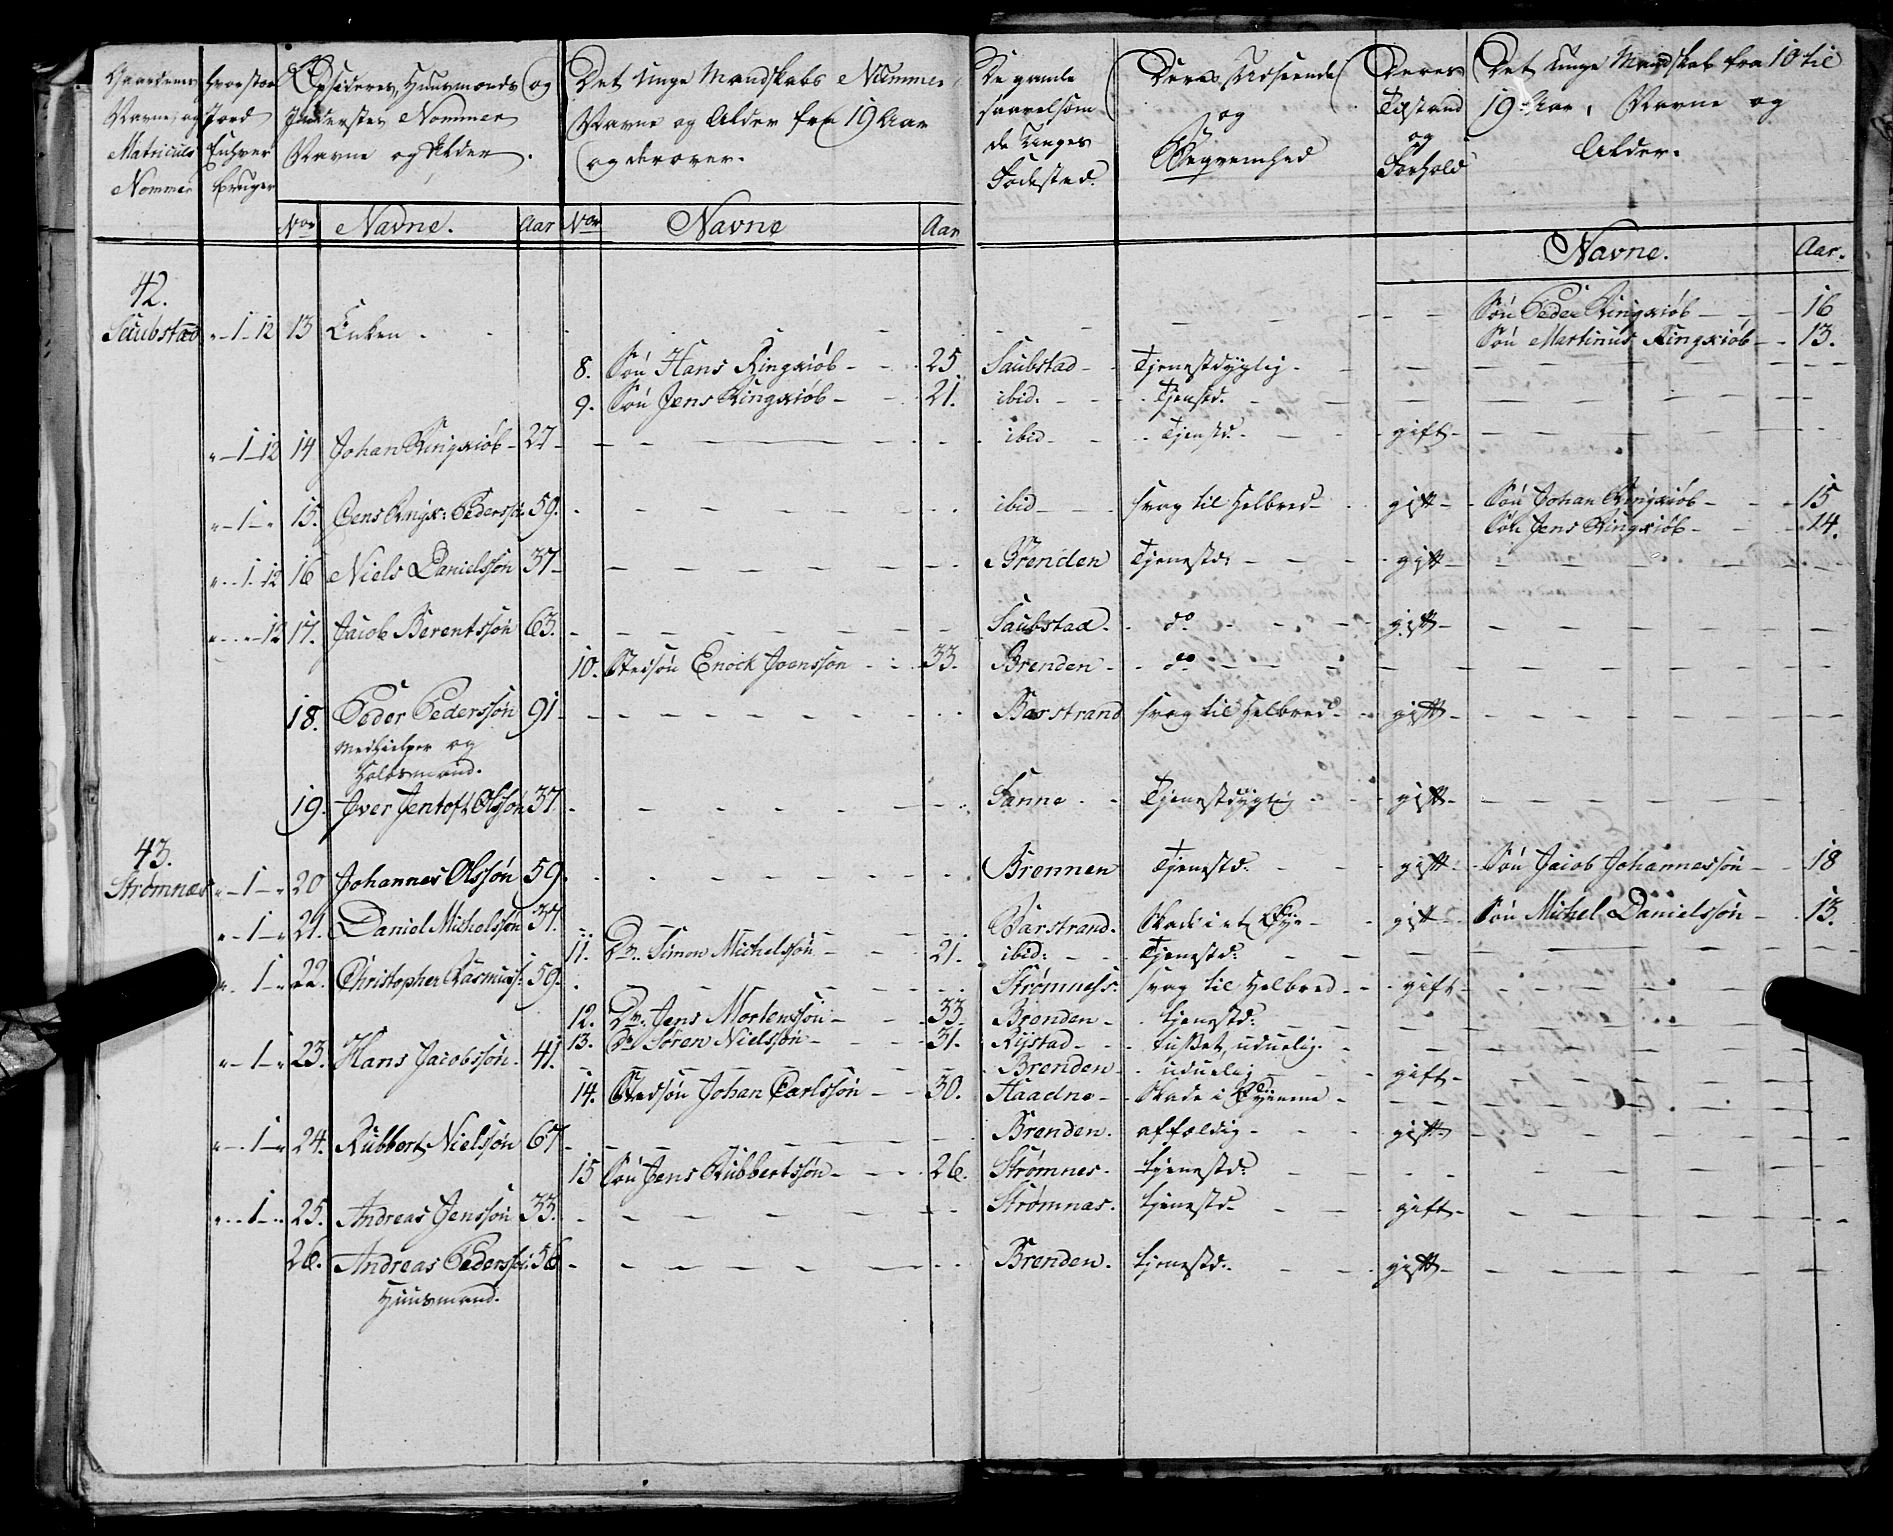 Gaardenes
Navne og
Matriculs
Nommer
hvor stor
Jord
Enhver
bruger
Opsideres, Huusmænds og
Inderstes Nommer
Navne og Alder.
Det unge Mandskabs Nummer,
Navne og Alder fra 19 Aar
og derover.
De gamle
saavelsom
de Unges
Fødested.
Deres Udseende
og
Beqvemhed
Deres
Tilstand
og
Forhold
Det unge Mandskab fra 10 til
19 Aar, Navne og
Alder.
Nor Navne. Aar Nor Navne Aar
Navne. Aar.
42.
Saubstad " - 1 - 12 13 Enken - - Søn Peder Ringxiøb - - - 16
Søn Martinus Ringxiøb - - 13.
8. Søn Hans Ringxiøb - - 25 Saubstad - - Tjenestdygtig -
9. Søn Jens Ringxiøb - - 21. ibid. - - Tjenstd.
" - 1 - 12 14 Johan Ringxiøb - 27 - ibid - - Tjenstd. - gift -
" - 1 - " 15. Jens Ringx: Pederss: 59. ibid - - svag til Helbred - gift - Søn Johan Ringxiøb - - 15
Søn Jens Ringxiøb - - 14.
" - 1 - 12 16 Niels Danielssøn 37 - Brenden Tjenestd: - gift -
" - " - 12 17. Jacob Berentssøn 63. Saubstad. - do - gift -
10. Stedsøn Enock Joenssøn - 33. Brenden - - do -
18. Peder Pederssøn 91 - Barstrand svag til Helbred - gift -
Medhielper og
Holdsmand.
19. Iver Jentoft Olssøn 37 - Sanne - - Tjenestdygtig - gift -
43.
Strømnæs " - 1 - " 20 Johannes Olssøn 59. Brennen Tjenestd. - gift - Søn Jacob Johannessøn - - 18
" - 1 - " 21. Daniel Michelssøn 37. Barstrand. Skade i et Øye - gift - Søn Michel Danielssøn - 13.
11. Dr. Simon Michelssøn - 21. ibid: - - Tjenestd:
" - 1 - " 22. Christopher Rasmuss: 59. Strømness. svag til Helbred - - gift -
12. Dr. Jens Mortenssøn - - 33 Brenden - - tjenestd:
13. Dr Søren Nielssøn - - 31. Rystad - - - tusset, uduelig. -
" - 1 - " 23. Hans Jacobssøn - 41. Brenden - - uduelig - gift -
14. Stedsøn Johan Carlssøn - - 30. Haadne - - Skade i Øynene -
" - 1 - " 24. Rubbert Nielssøn 67 Brenden. - affældig - gift -
15 Søn Jens Rubbertssøn - - 26. Strømnes. - tjenestd: -
" - 1 - " 25. Andreas Jenssøn 33. Strømnæs. - tjenestd. - gift -
26. Andreas Pederss: 56 - Brenden. - tjenestd. - gift -
Huusmand.